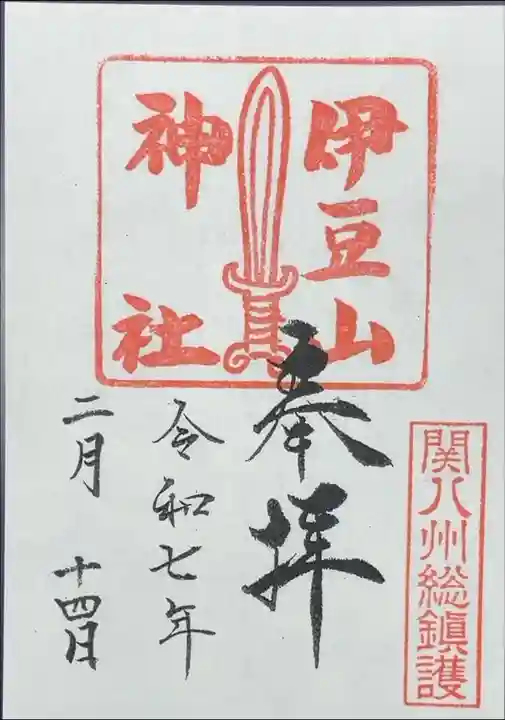 関八州総鎮護
伊豆山
神社
奉拝
令和七年
二月十四日